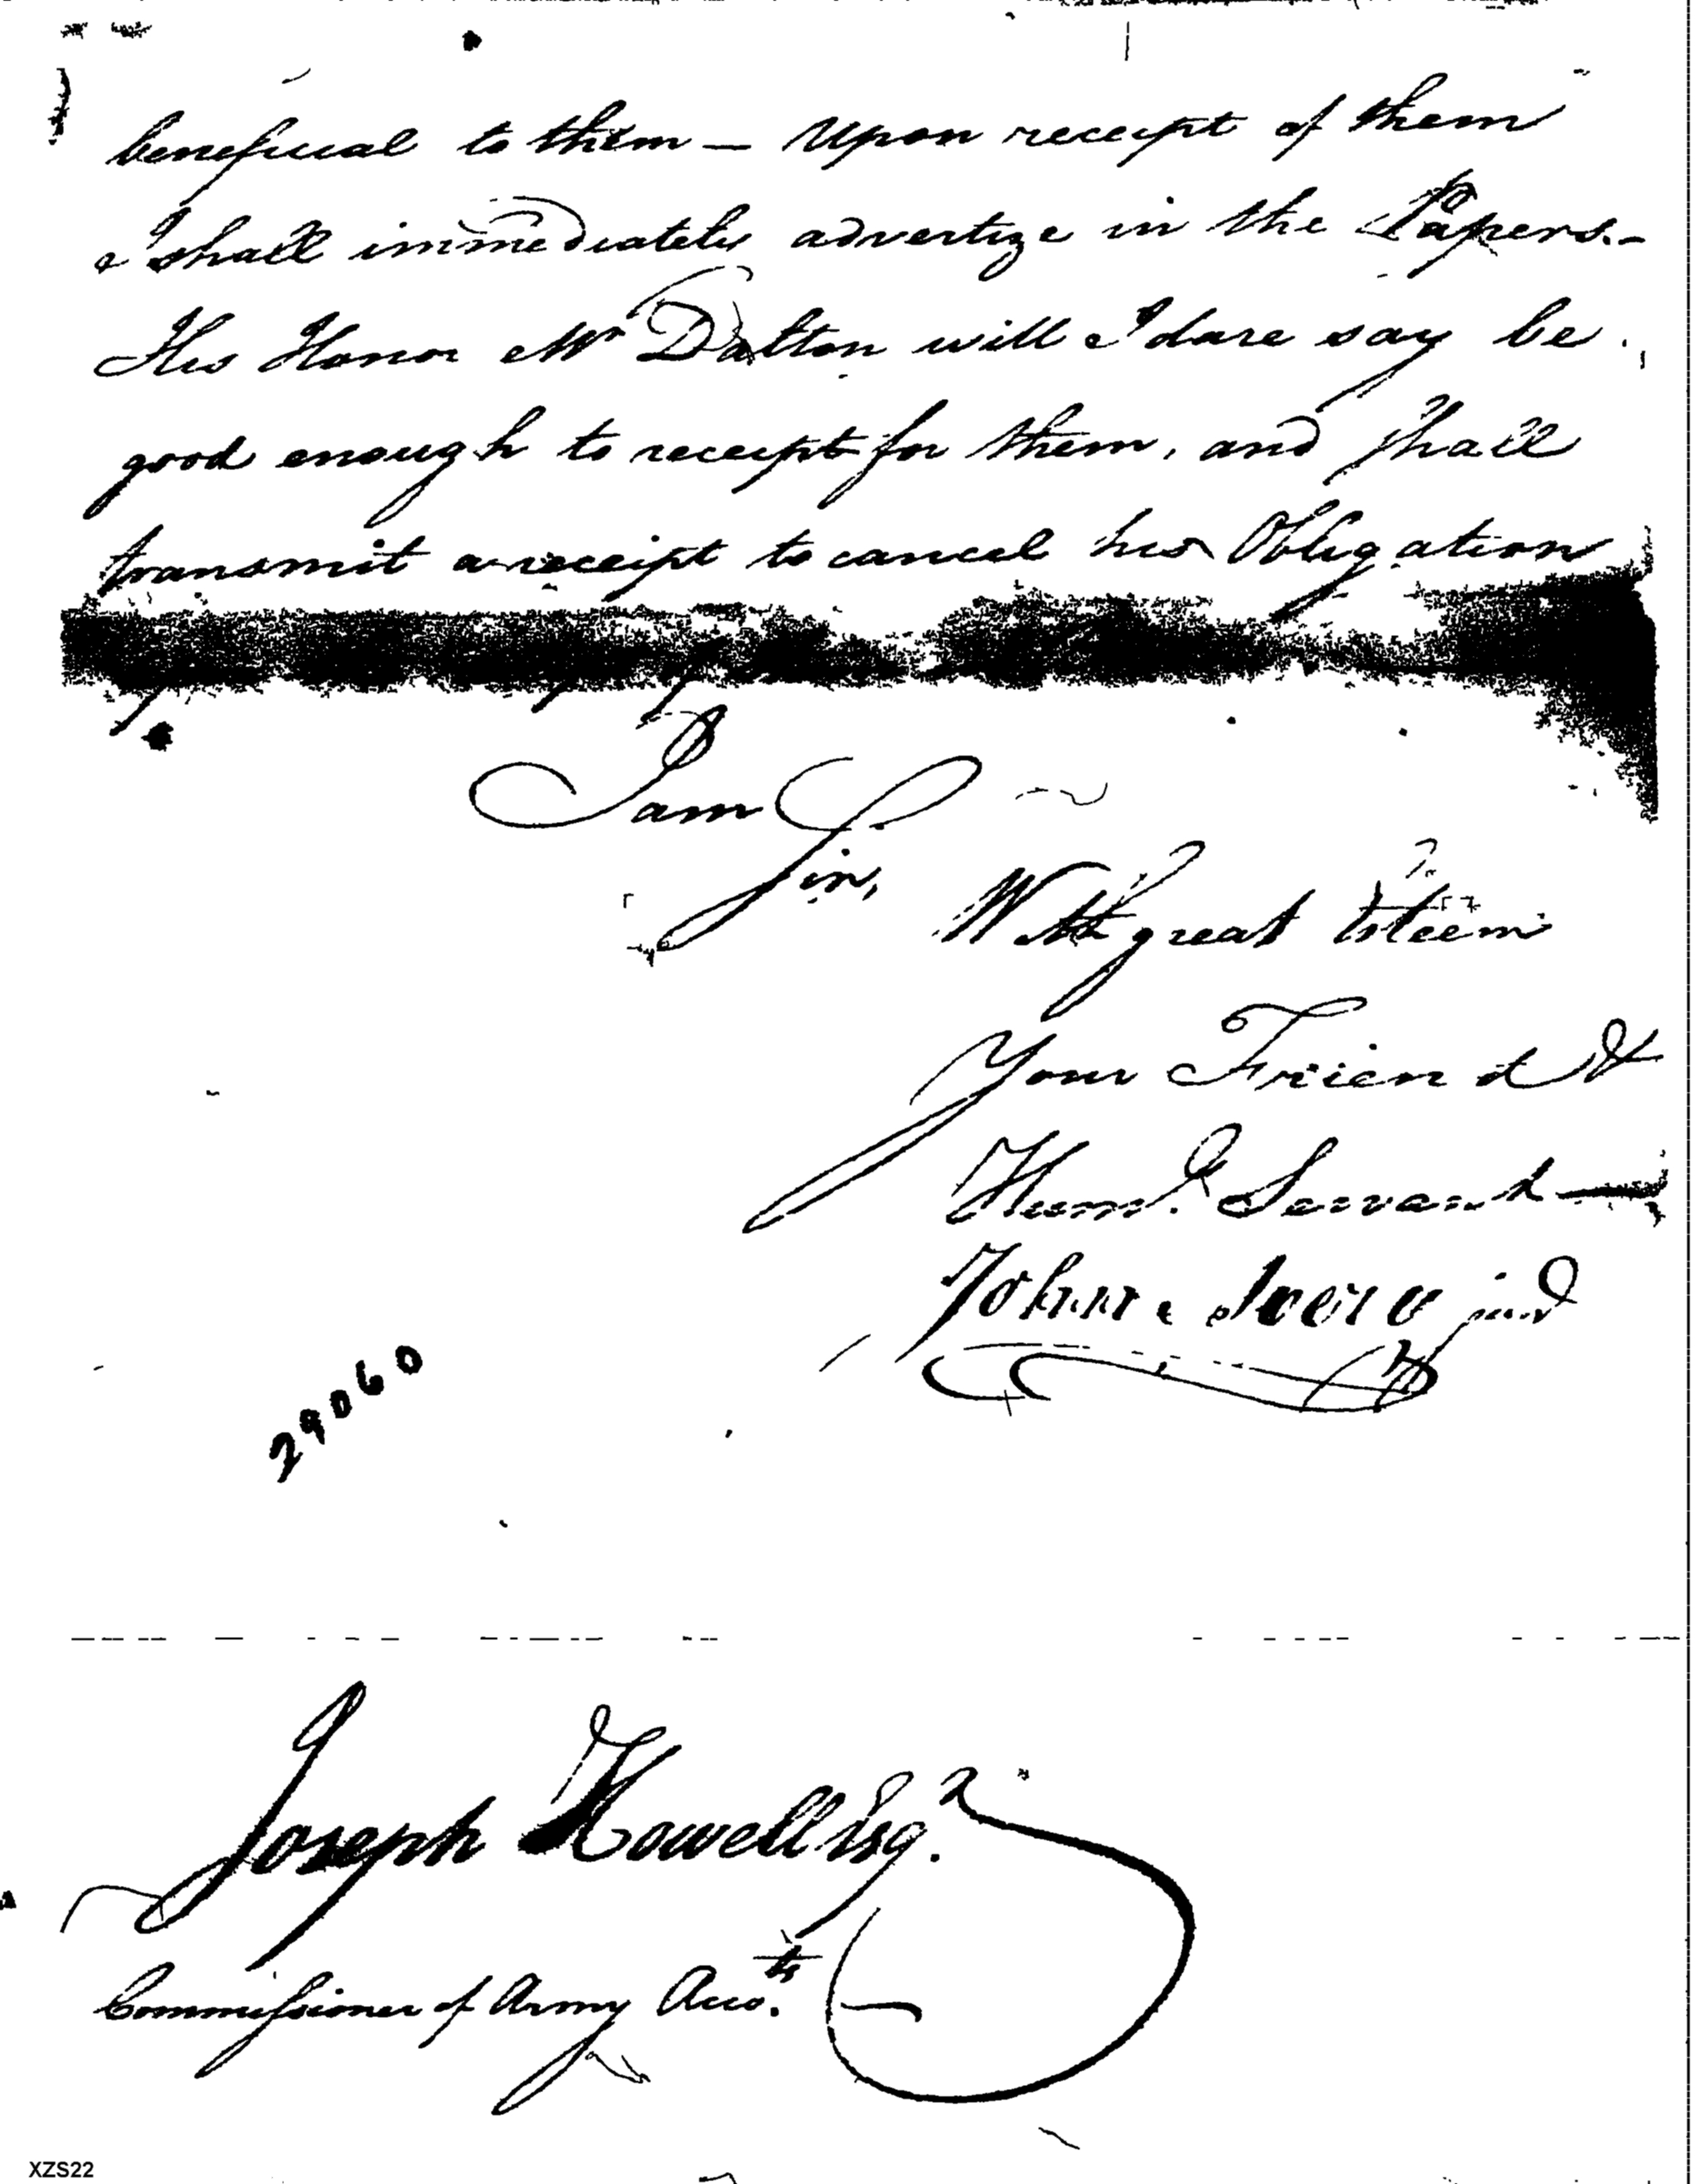 beneficial to them — Upon receipt of them
I shall immediately advertize in the Papers.-
His Honor Mr Dalton will I dare say be
good enough to receipt for them, and shall
transmit a receipt to cancel his Obligation
I am
Sir,
With great Esteem
Your Friend &
Huml. Servant —
John Avery junr
29060
Joseph Howell Esqr.
Commissioner of Army Accots.
XZS22